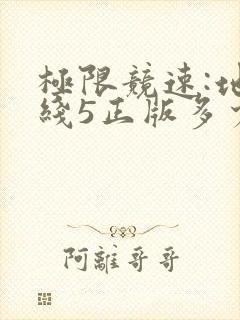 極限競速:地
綫5正版多少
阿離哥哥